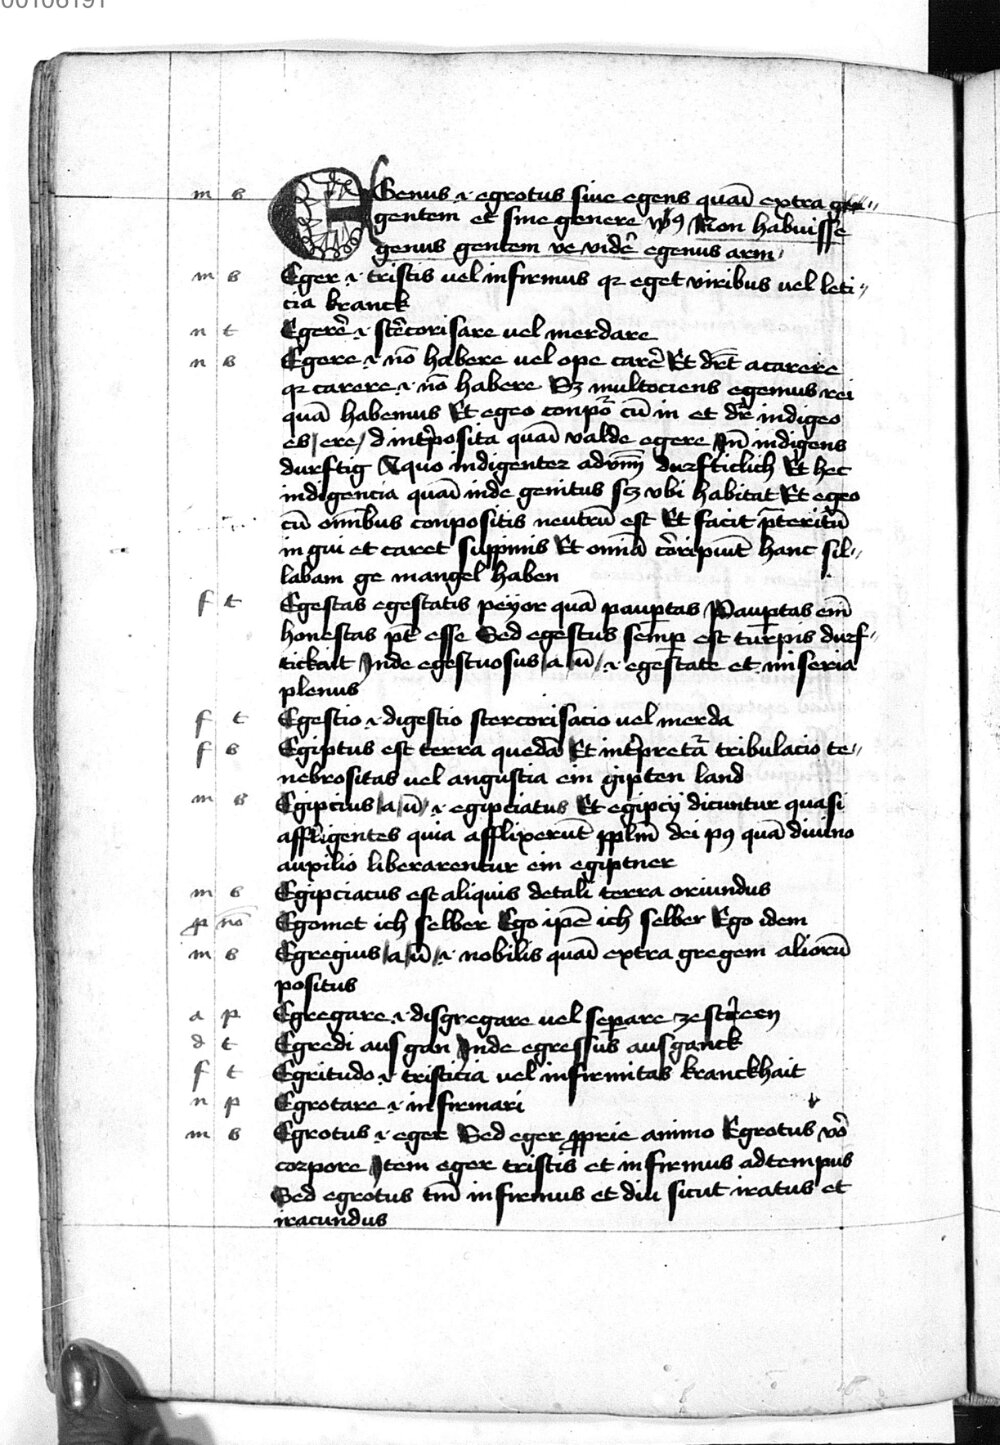 00106191
m s EGenus .i. egrotus siue egens quasi extra gen„
gentem et sine genere vs9 Non habuisse
genus gentem ve vidēr egenus arm
m s Eger .i. tristis uel infirmus qr eget viribus uel leti„
cia kranck
n t Egerē .i. stercorisare uel merdare
n s Egere .i. nō habere vel ope carē Et drēt a carere
qr carere .i. nō habere Sz multociens egemus rei
quā habemus Et egeo conpōr cū in et dr̄ indigeo
es/ere/d int̄posita quasi valde egere Jn̄ indigens
durftig A quo indigenter aduīm durfticlich Et hec
indigencia quasi inde genitus scz vbi habitat Et egeo
cū om̄ibus conpositis neutrū est Et facit p̄teritū
in gui et caret suppinis Et omīa cōripiūt hanc sil„
labam ge mangel haben
f t Egestas egestatis peyor quā paup̄tas Paup̄tas em̄
honestas pt̄ esse Sed egestus semp̄ est turpis durf„
tickait Jnde egestuosus/a/ū/ .i. egestate et miseria
plenus
f t Egestio .i. digestio stercorisacio uel merda
f s Egiptus est terra quedā Et int̄pretā tribulacio te„
nebrositas uel angustia ein gipten land
m s Egipcius/a/ū/ .i. egipciatus Et egipcij dicuntur quasi
affligentes quia afflixerūt pplm̄ dei p9 quā diuino
auxilio liberarentur ein egiptner
m s Egipciacus est aliquis de tali terra oriundus
p nō Egomet ich selber Ego ipē ich selber Ego idem
m s Egregius/a/ū/ .i. nobilis quasi extra gregem aliorū
positus
a p Egregare .i. disgregare uel sep̄are zeströeen
d t Egredi aus gan Jnde egressus ausganck
f t Egritudo .i. tristicia uel infirmitas kranckhait
n p Egrotare .i. infirmari
m s Egrotus .i. eger Sed eger pprie animo Egrotus vō
corpore Jtem eger tristis et infirmus ad tempus
Sed egrotus tm̄ infirmus et diu sicut iratus et
iracundus